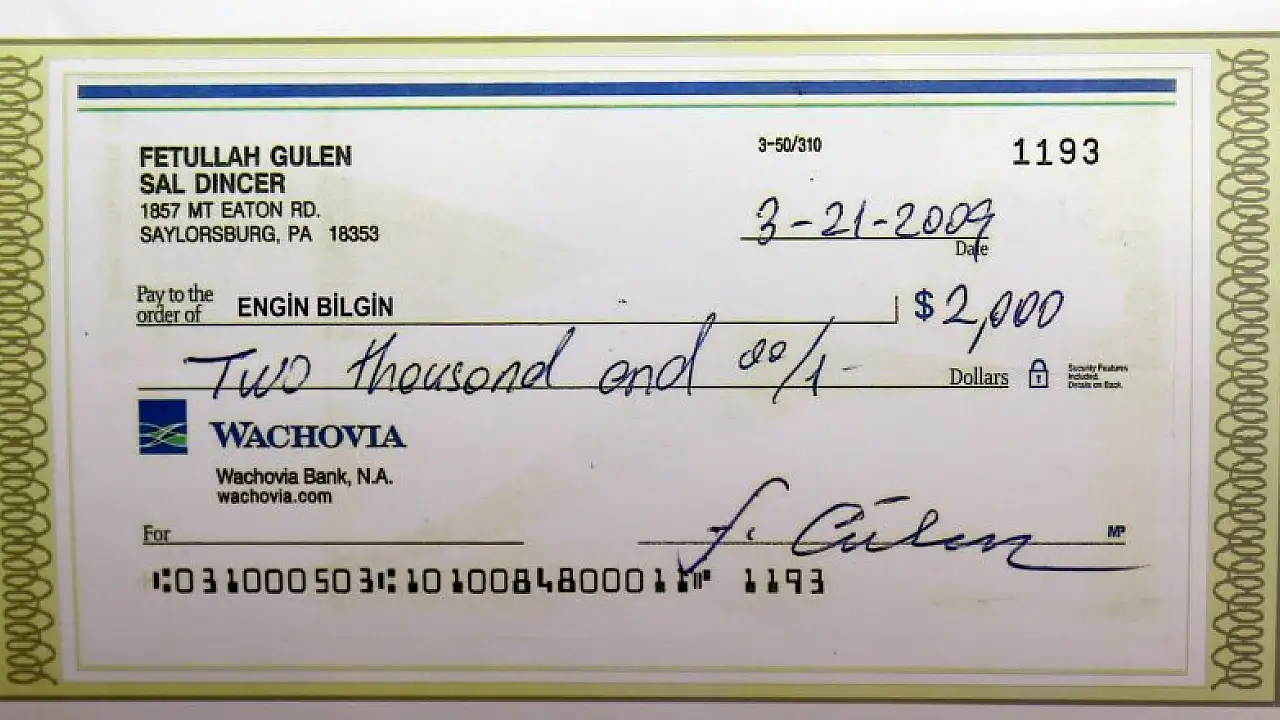 3-50/310
1193
FETULLAH GULEN
SAL DINCER
1857 MT EATON RD.
SAYLORSBURG, PA 18353
3-21-2009
Date
Pay to the
order of
ENGİN BİLGİN
$ 2,000
Two thousand and 00/1-
Dollars
Security Features
Included.
Details on Back.
WACHOVIA
Wachovia Bank, N.A.
wachovia.com
For
f. Gülen
MP
⑆031000503⑆1010084800011⑈ 1193